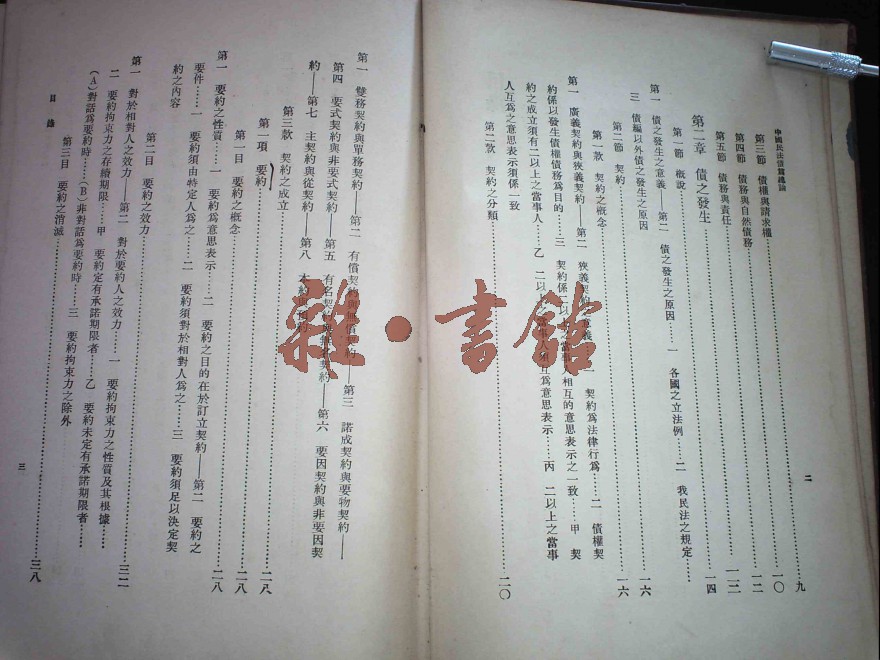 中國民法債篇總論
二
第三節 債權與請求權……九
第四節 債務與自然債務……一〇
第五節 債務與責任……一二
第二章 債之發生……一四
第一節 概說
第一 債之發生之意義——第二 債之發生之原因……一 各國之立法例……二 我民法之規定……
三 債編以外債之發生之原因
第二節 契約……一六
第一款 契約之概念……一六
第一 廣義契約與狹義契約——第二 狹義契約之意義……一 契約爲法律行爲……二 債權契
約係以發生債權債務爲目的……三 契約係二以上之當事人相互的意思表示之一致……甲 契
約之成立須有二以上之當事人……乙 二以上之當事人須互爲意思表示……丙 二以上之當事
人互爲之意思表示須係一致
第二款 契約之分類……二〇
第一 雙務契約與單務契約——第二 有償契約與無償契約——第三 諾成契約與要物契約——
第四 要式契約與非要式契約——第五 有名契約與無名契約——第六 要因契約與非要因契
約——第七 主契約與從契約——第八 本約與預約
第三款 契約之成立……二八
第一項 要約……二八
第一目 要約之概念……二八
第一 要約之性質……一 要約爲意思表示……二 要約之目的在於訂立契約——第二 要約之
要件……一 要約須由特定人爲之……二 要約須對於相對人爲之……三 要約須足以決定契
約之內容
第二目 要約之效力……三二
第一 對於相對人之效力——第二 對於要約人之效力……一 要約拘束力之性質及其根據……
二 要約拘束力之存續期限……甲 要約定有承諾期限者……乙 要約未定有承諾期限者……
(A)對話爲要約時……(B)非對話爲要約時……三 要約拘束力之除外
第三目 要約之消滅……三八
目錄
三
雜·書館